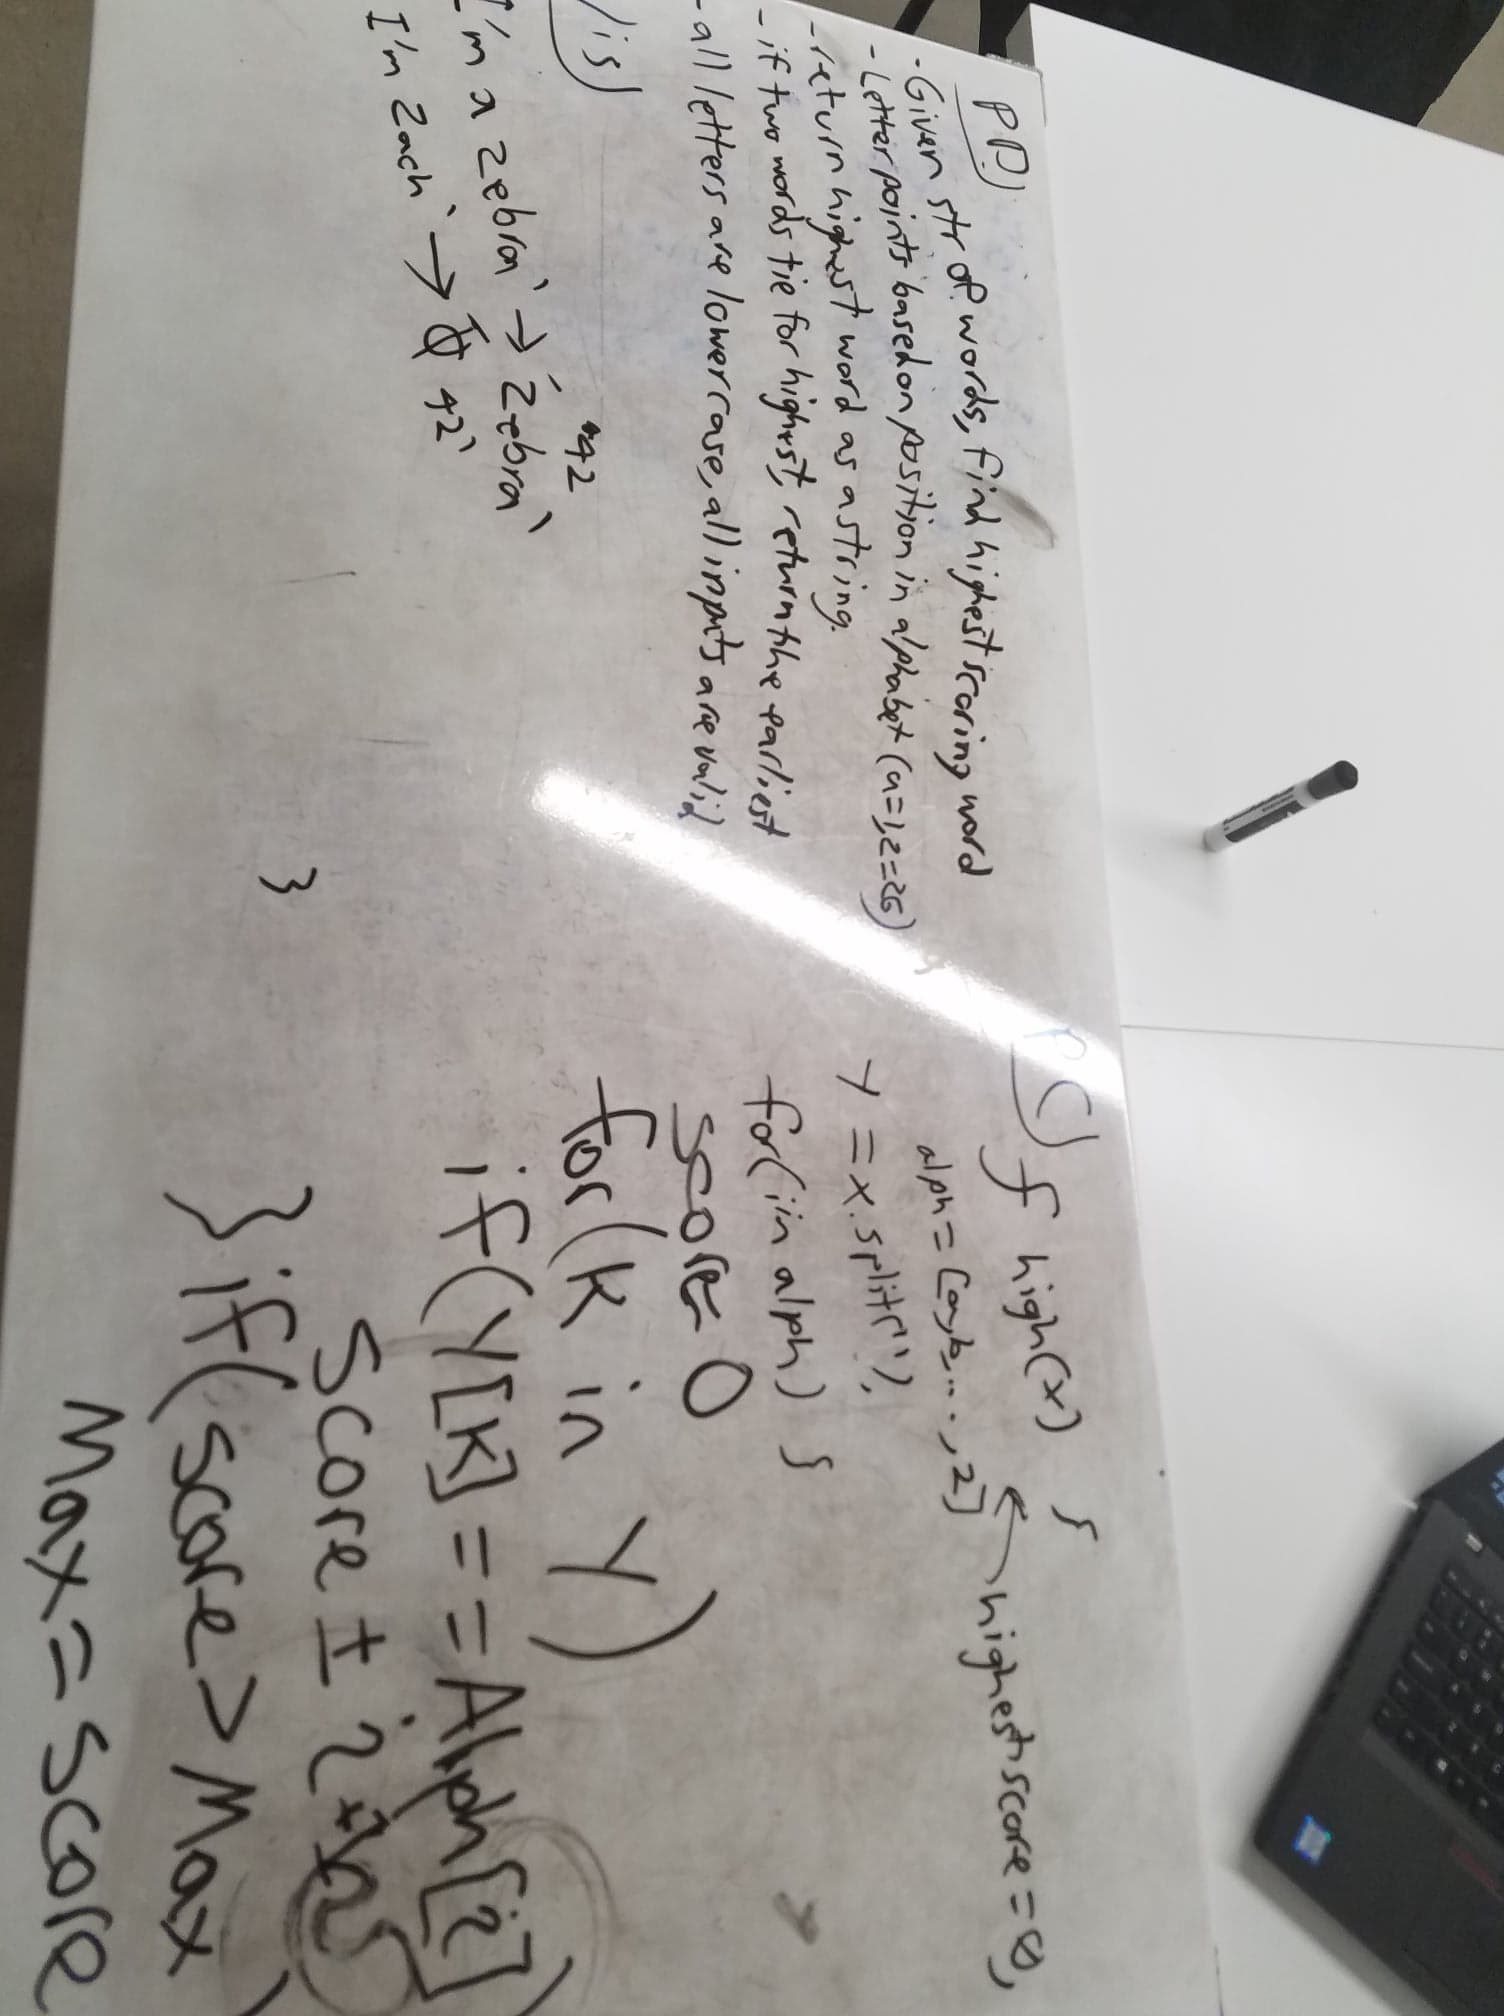 PD)
- Given str of words, find highest scoring word
- Letter points based on position in alphabet (a=1, z=26)
- return highest word as a string.
- if two words tie for highest, return the earliest
- all letters are lowercase, all inputs are valid
I'm a zebra' → 'zebra'
"42
I'm zach' → 42'
}
PC) f high(x) {
alph = [a,b,...,z] ← highest score = 0,
y = x.split(' '),
for(i in alph) {
score = 0
for(k in y)
if(y[k] == Alph[i])
score ± i +
} if(score > Max)
Max = score